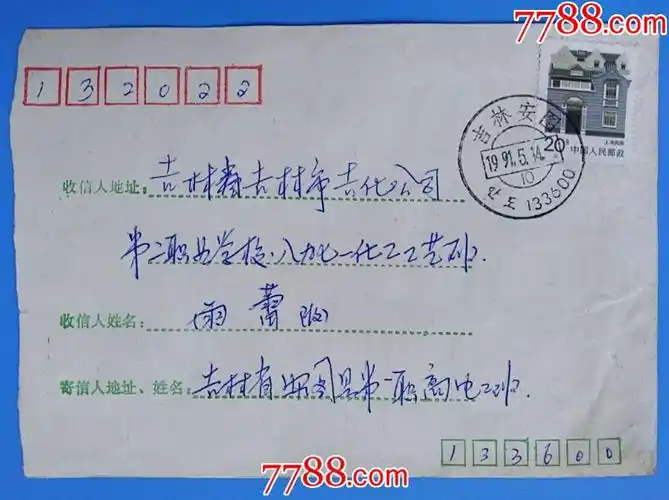 7788.com
132022
上海民居
20分 中国人民邮政
吉林安图
1991.5.14
10
133600
收信人地址: 吉林省吉林市吉化公司
第二职业学校·八九七一化工工艺班
收信人姓名: 雨蕾
寄信人地址、姓名: 吉林省安图县第一职高电工班
133600
7788.com
7788.com